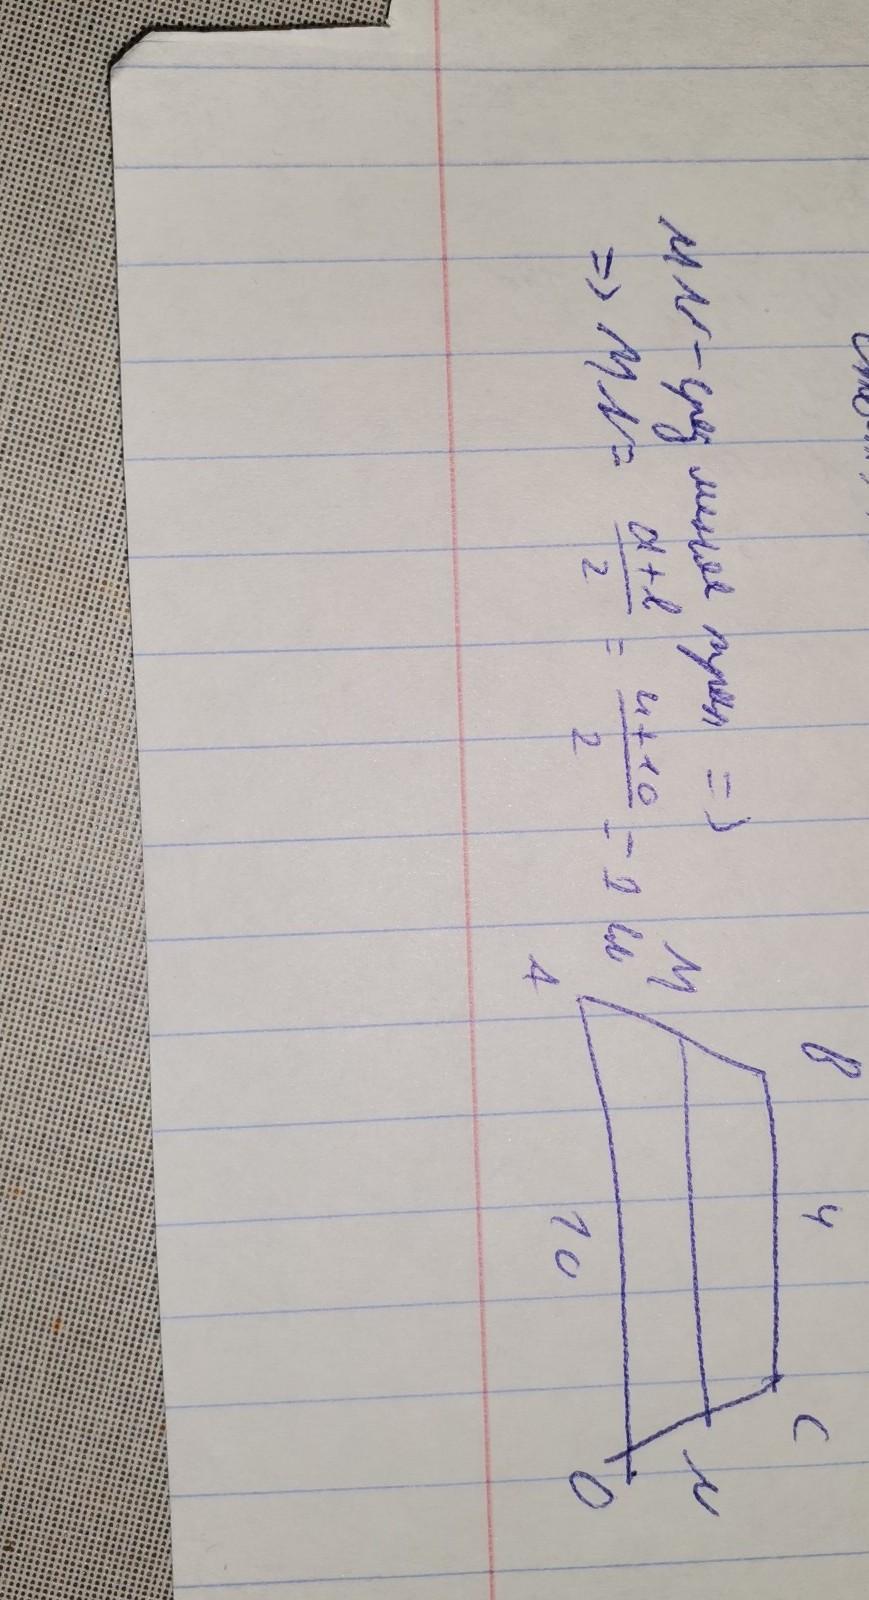 MN - сред линия трап =>
=> MN = a+b/2 = 4+10/2 = 7 см
B 4 C
M N
A 10 D